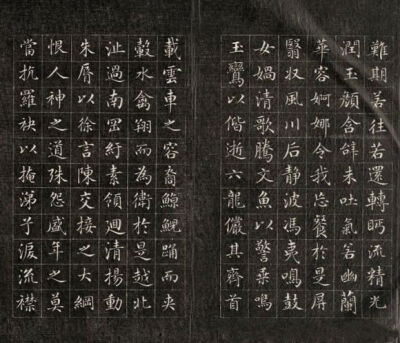 難期若往若還轉眄流精光
潤玉顏含辭未吐氣若幽蘭
華容婀娜令我忘餐於是屏
翳收風川后靜波馮夷鳴鼓
女媧清歌騰文魚以警乘鳴
玉鸞以偕逝六龍儼其齊首
載雲車之容裔鯨鯢踊而夾
轂水禽翔而為衛於是越北
沚過南岡紆素領迴清揚動
朱脣以徐言陳交接之大綱
恨人神之道殊怨盛年之莫
當抗羅袂以掩涕兮淚流襟